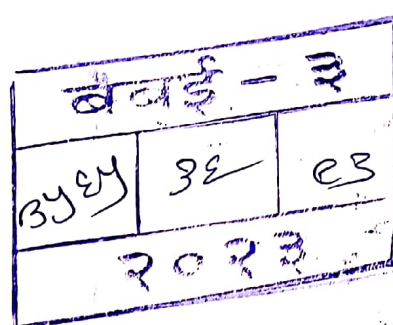 बबई - ३
३५६५ ३६ ९३
२०२३